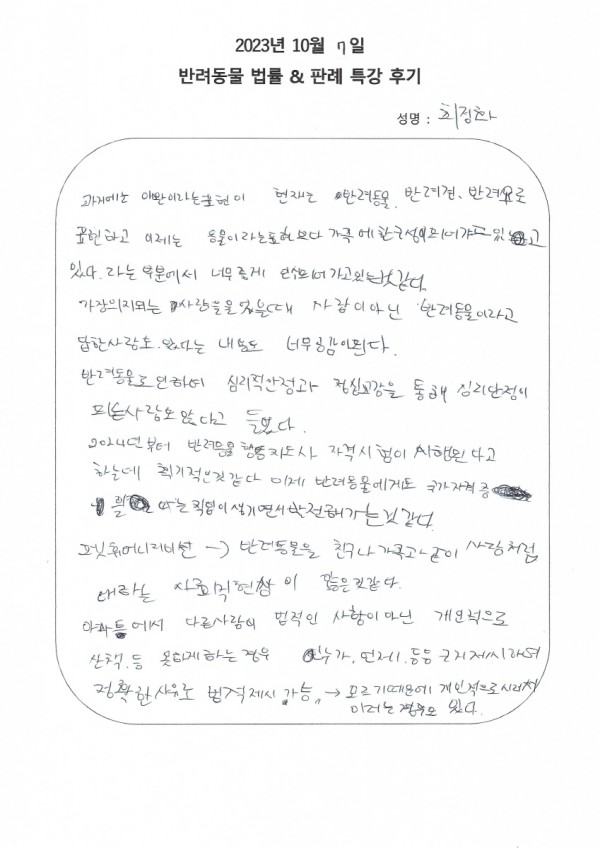 2023년 10월 7일
반려동물 법률 & 판례 특강 후기
성명 : 최정화
과거에는 애완이라는표현이 현재는 반려동물, 반려견, 반려묘로
표현하고 이제는 동물이라는표현보다 가족에한구성이되어가고 있
있다. 라는 부분에서 너무좋게 되어가고있는것같다.
가장의지되는 사람을 었을때 사람이아닌 반려동물이라고
답한사람도 있다는 내용도 너무공감이된다.
반려동물로인하여 심리적안정과 정신건강을 통해 심리안정이
되는사람도 있다고 들었다.
2024년부터 반려동물 행동지도사 자격시험이 시행된다고
하는데 획기적인것같다 이제 반려동물에게도 국가자격증
를 따는 직업이 생기면서 발전해가는것같다.
펫휴머니제이션 → 반려동물을 친구나가족과같이 사람처럼
대하는 사회적현상이 많은것같다.
아파트에서 다른사람이 법적인 사항이아닌 개인적으로
산책, 등 못하게하는경우 누가, 언제, 등등 제시하여
정확한사유로 법적제시 가능, → 모르기때문에 개인적으로
이러는경우도 있다.